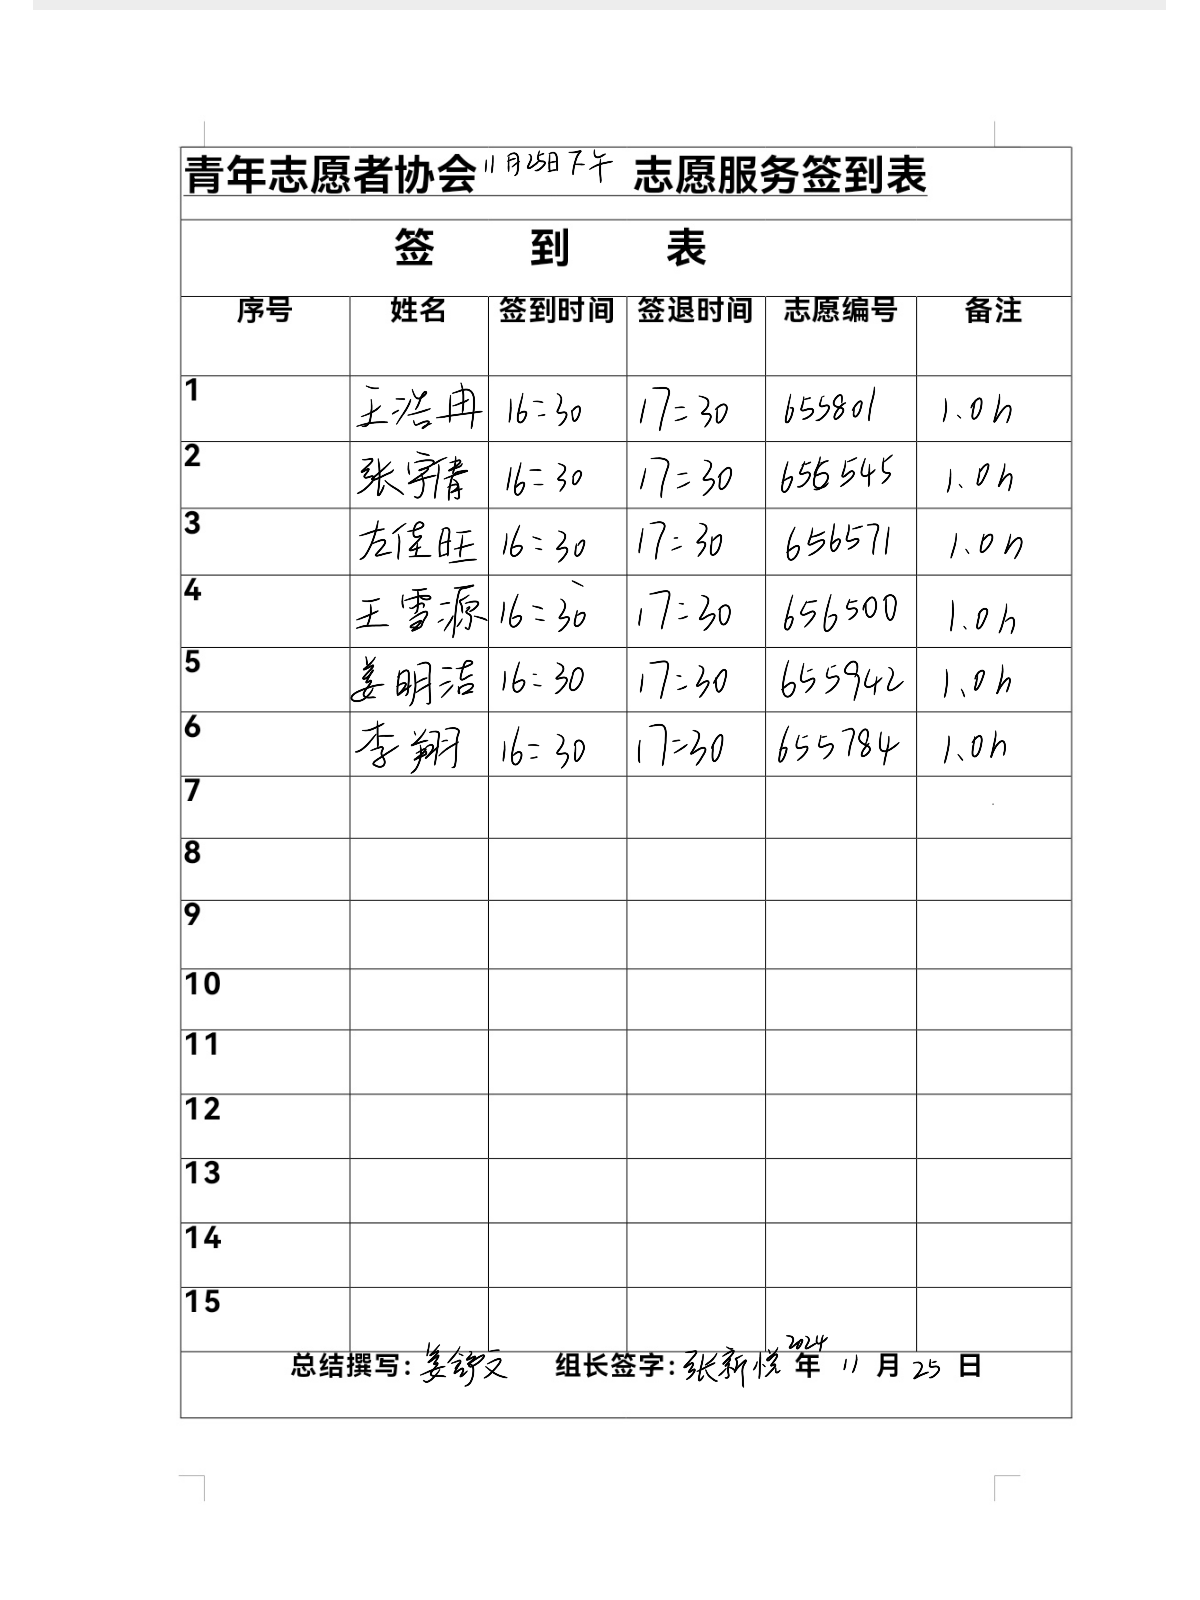 青年志愿者协会11月25日下午 志愿服务签到表
签 到 表
序号 姓名 签到时间 签退时间 志愿编号 备注
1 王浩冉 16:30 17:30 655801 1.0h
2 张宇倩 16:30 17:30 656545 1.0h
3 左佳旺 16:30 17:30 656571 1.0h
4 王雪源 16:30 17:30 656500 1.0h
5 姜明洁 16:30 17:30 655942 1.0h
6 李翔 16:30 17:30 655784 1.0h
7
8
9
10
11
12
13
14
15
总结撰写:姜舒文 组长签字:张新悦 2024年 11 月 25 日